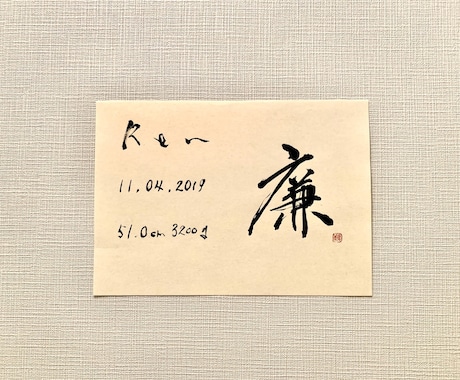 Ren
11.04.2019
51.0cm 3200g
廉